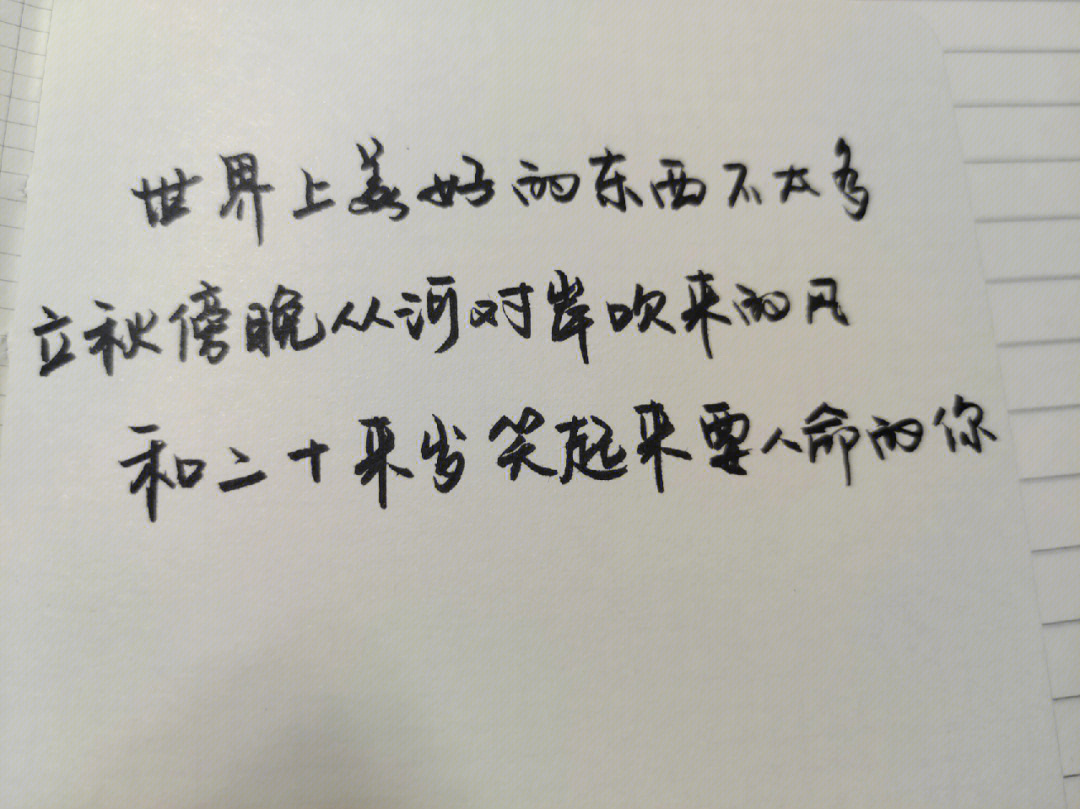 世界上美好的东西不太多
立秋傍晚从河对岸吹来的风
和二十来岁笑起来要人命的你